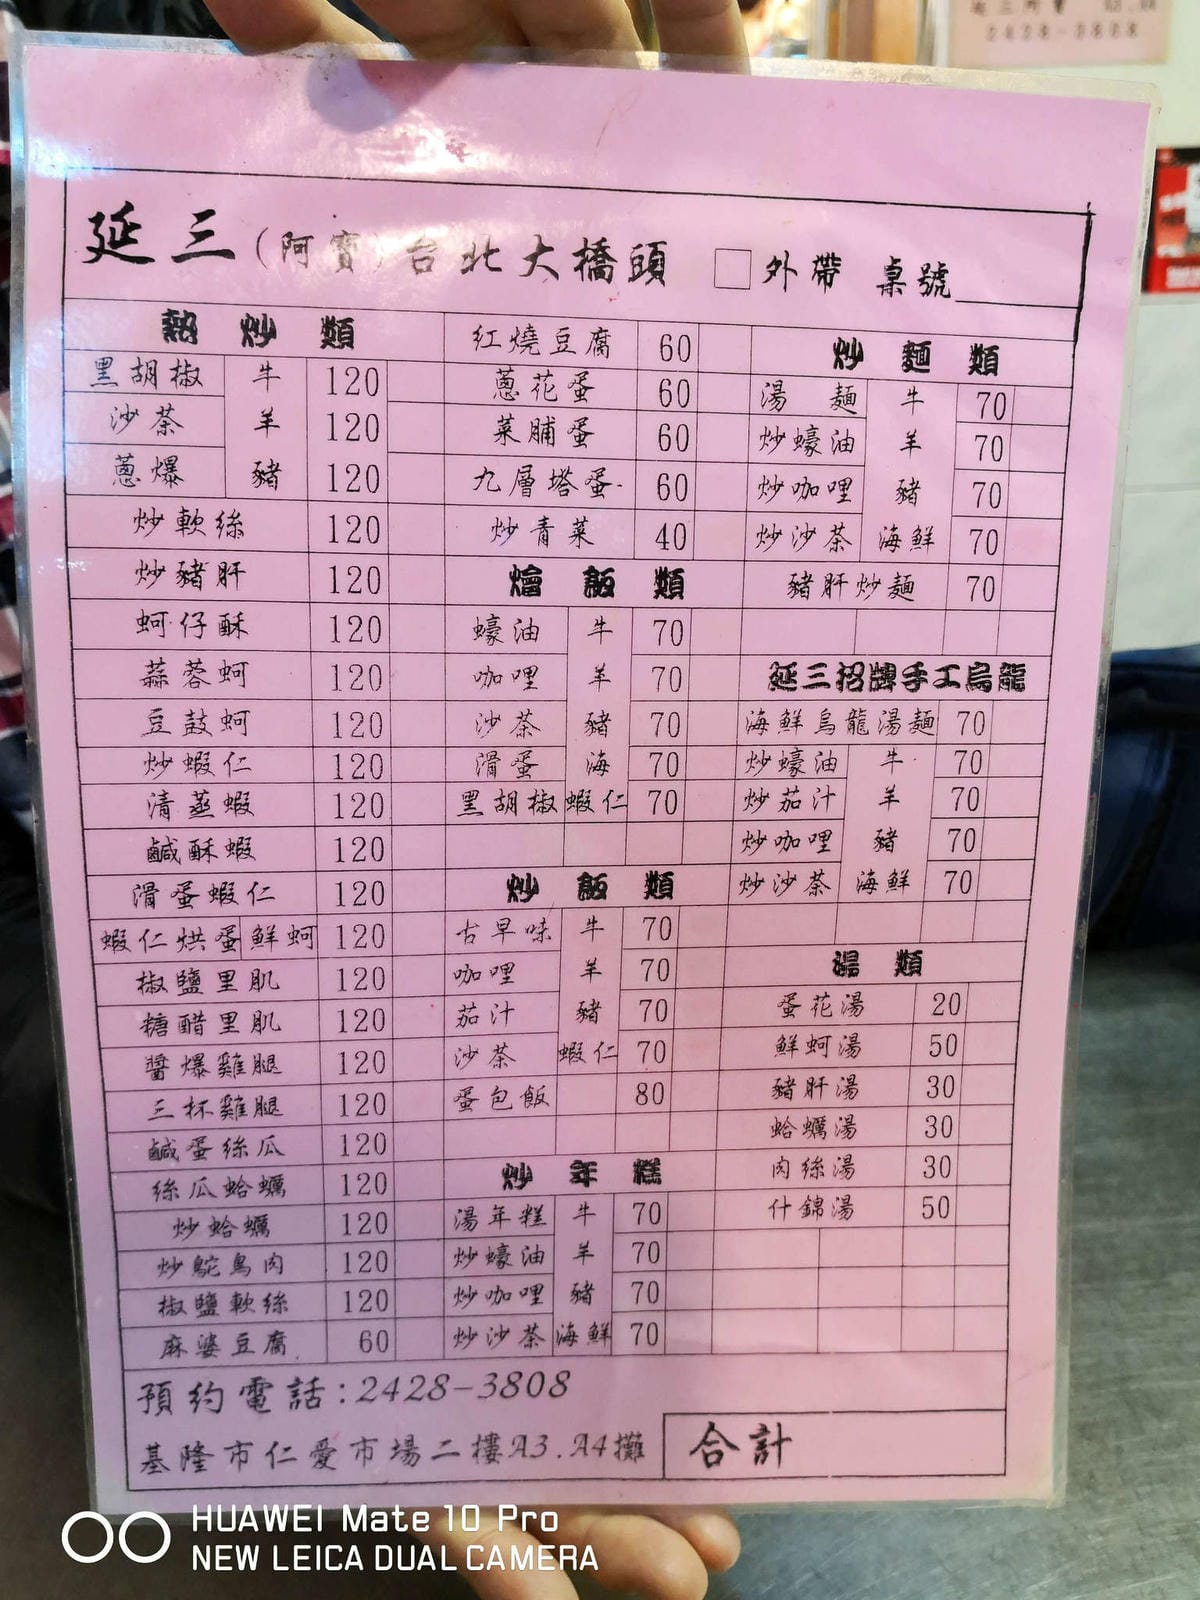 延三(阿寶)台北大橋頭 □外帶 桌號
熱炒類
黑胡椒 牛 120
沙茶 羊 120
蔥爆 豬 120
炒軟絲 120
炒豬肝 120
蚵仔酥 120
蒜蓉蚵 120
豆鼓蚵 120
炒蝦仁 120
清蒸蝦 120
鹹酥蝦 120
滑蛋蝦仁 120
蝦仁烘蛋 鮮蚵 120
椒鹽里肌 120
糖醋里肌 120
醬爆雞腿 120
三杯雞腿 120
鹹蛋絲瓜 120
絲瓜蛤蠣 120
炒蛤蠣 120
炒鴕鳥肉 120
椒鹽軟絲 120
麻婆豆腐 60
紅燒豆腐 60
蔥花蛋 60
菜脯蛋 60
九層塔蛋 60
炒青菜 40
燴飯類
蠔油 牛 70
咖哩 羊 70
沙茶 豬 70
滑蛋 海 70
黑胡椒 蝦仁 70
炒飯類
古早味 牛 70
咖哩 羊 70
茄汁 豬 70
沙茶 蝦仁 70
蛋包飯 80
炒年糕
湯年糕 牛 70
炒蠔油 羊 70
炒咖哩 豬 70
炒沙茶 海鮮 70
炒麵類
湯麵 牛 70
炒蠔油 羊 70
炒咖哩 豬 70
炒沙茶 海鮮 70
豬肝炒麵 70
延三招牌手工烏龍
海鮮烏龍湯麵 70
炒蠔油 牛 70
炒茄汁 羊 70
炒咖哩 豬 70
炒沙茶 海鮮 70
湯類
蛋花湯 20
鮮蚵湯 50
豬肝湯 30
蛤蠣湯 30
肉絲湯 30
什錦湯 50
預約電話:2428-3808
基隆市仁愛市場二樓A3.A4攤
合計
HUAWEI Mate 10 Pro
NEW LEICA DUAL CAMERA
2428-3808